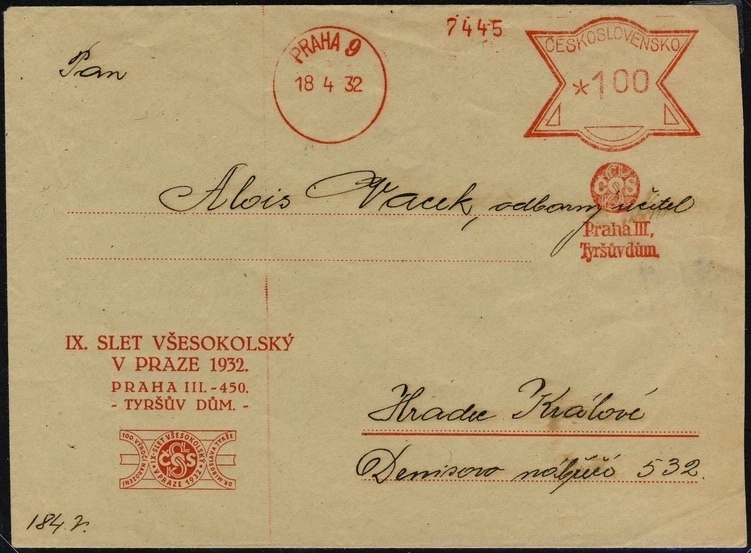 7445
PRAHA 9
18 4 32
ČESKOSLOVENSKO
*100
Pan
Alois Vacek, odborný učitel
ČOS
Praha III,
Tyršův dům.
IX. SLET VŠESOKOLSKÝ
V PRAZE 1932.
PRAHA III. - 450.
- TYRŠŮV DŮM. -
Hradec Králové
Denisovo nábřeží 532.
IX. SLET VŠESOKOLSKÝ
V PRAZE 1932
100. VÝROČÍ
NAROZENÍ
DR. MIROSLAVA TYRŠE
ČOS
184 2.